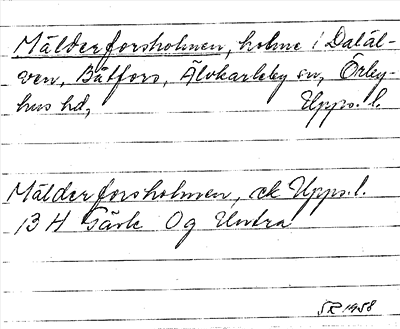 Mälderforsholmen, holme i Daläl-
ven, Båtfors, Älvkarleby sn, Örby-
hus hd, Upps. l.
Mälderforsholmen, ek Upps. l.
13 H Tärk Og Untra
SR 1958